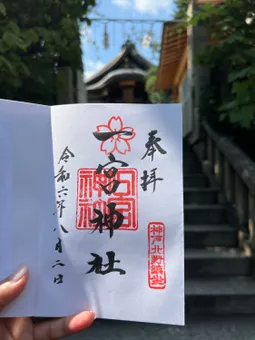 奉拝
一宮神社
一宮神社
神戸北野鎮座
令和六年八月二日